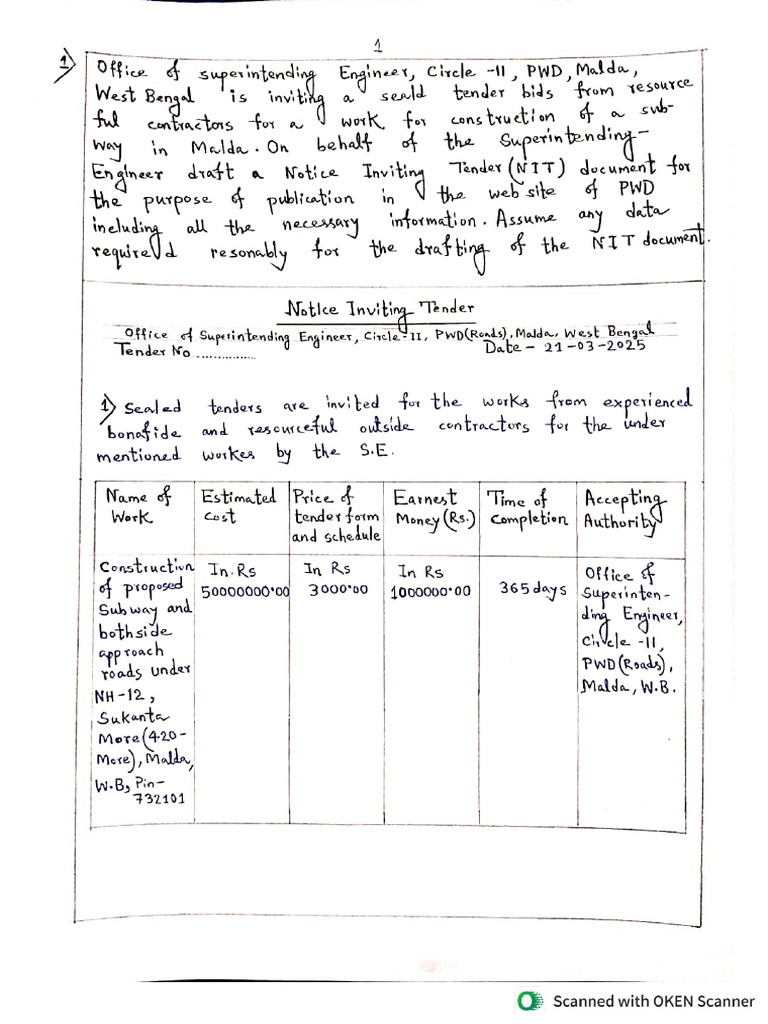 1
1) Office of superintending Engineer, Circle -II, PWD, Malda,
West Bengal is inviting a seald tender bids from resource
ful contractors for a work for construction of a sub-
way in Malda. On behalf of the Superintending-
Engineer draft a Notice Inviting Tender (NIT) document for
the purpose of publication in the web site of PWD
including all the necessary information. Assume any data
required resonably for the drafting of the NIT document.
Notice Inviting Tender
Office of Superintending Engineer, Circle-II, PWD(Roads), Malda, West Bengal
Tender No...............
Date - 21-03-2025
1) Sealed tenders are invited for the works from experienced
bonafide and resourceful outside contractors for the under
mentioned workes by the S.E.
Name of
Work
Estimated
cost
Price of
tender form
and schedule
Earnest
Money (Rs.)
Time of
completion
Accepting
Authority
Construction
of proposed
Subway and
bothside
approach
roads under
NH-12,
Sukanta
More (420-
More), Malda,
W.B, Pin-
732101
In Rs
50000000.00
In Rs
3000.00
In Rs
1000000.00
365 days
Office of
Superinten-
ding Engineer,
Circle -II,
PWD (Roads),
Malda, W.B.
Scanned with OKEN Scanner